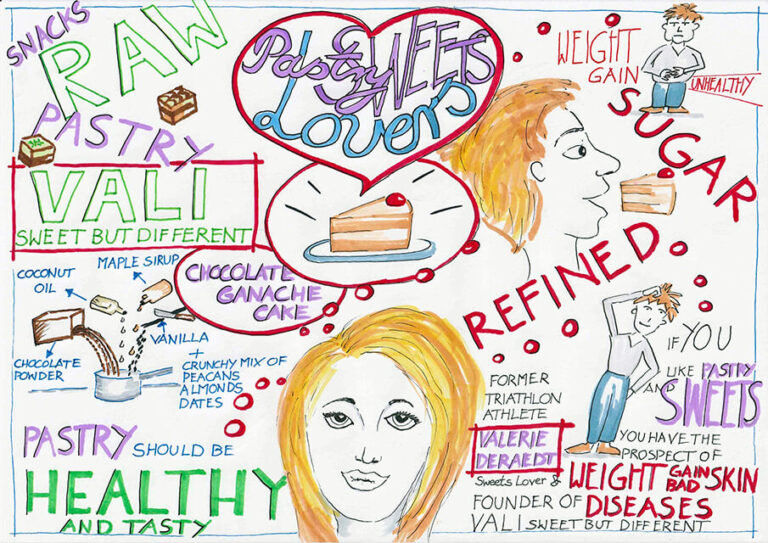 SNACKS
RAW
PASTRY
VALI
SWEET BUT DIFFERENT
Pastry & SWEETS
Lovers
WEIGHT
GAIN
UNHEALTHY
SUGAR
REFINED
COCONUT
OIL
MAPLE SIRUP
CHOCOLATE
POWDER
VANILLA
+
CRUNCHY MIX OF
PEACANS
ALMONDS
DATES
CHOCOLATE
GANACHE
CAKE
PASTRY SHOULD BE
HEALTHY
AND TASTY
FORMER
TRIATHLON
ATHLETE
VALERIE
DERAEDT
Sweets Lover &
FOUNDER OF
VALI SWEET BUT DIFFERENT
IF YOU
LIKE PASTRY
AND SWEETS
YOU HAVE THE
PROSPECT OF
WEIGHT GAIN
BAD SKIN
DISEASES